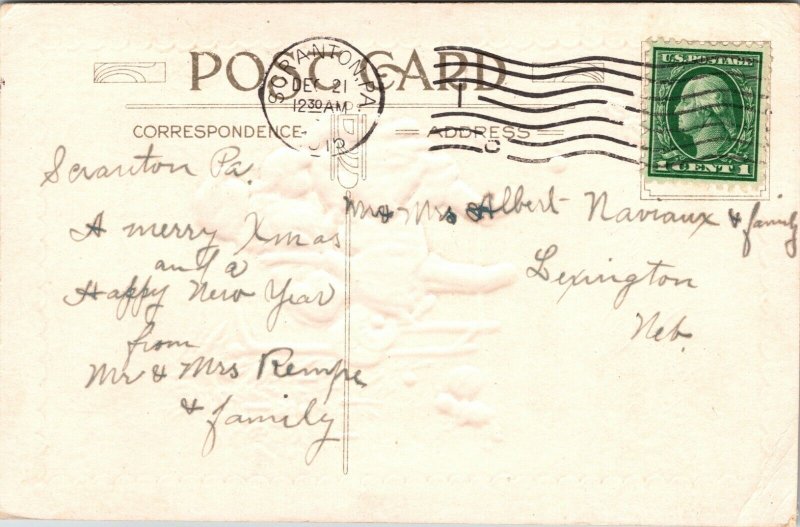 POST CARD
SCRANTON, PA.
DEC 21
12 30 AM
U.S. POSTAGE
1 CENT 1
CORRESPONDENCE
ADDRESS
Scranton Pa.
A merry Xmas
and a
Happy New Year
from
Mr & Mrs Rempe
& family
Mr & Mrs Albert Naviaux & family
Lexington
Neb.